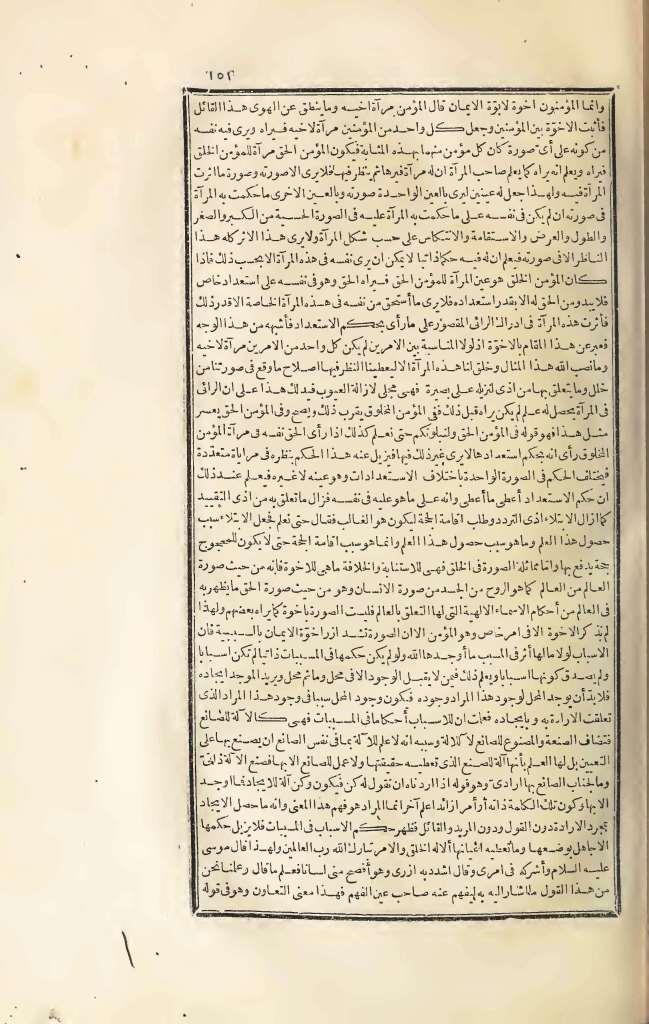 ٦٥٢
وانما المؤمنون اخوة لابوّة الايمان قال المؤمن مرآة اخيه وما ينطق عن الهوى هذا القائل
فأثبت الاخوّة بين المؤمنين وجعل كل واحد من المؤمنين مرآة لاخيه فيراه ويرى فيه نفسه
من كونه على أى صورة كان كل مؤمن منهما بهذه المثابة فيكون المؤمن الحق مرآة للمؤمن الخلق
فيراه ويعلم انه يراه كما يعلم صاحب المرآة ان له مرآة فيرها ثم ينظر فيها فلا يرى الا صورته وصورة ما اثرت
المرآة فيه ولهذا جعل له عينين ليرى بالعين الواحدة صورته وبالعين الاخرى ما حكمت به المرآة
فى صورته ان لم يكن فى نفسه على ما حكمت به المرآة عليه فى الصورة الحسية من الكبر والصغر
والطول والعرض والاستقامة والانتكاس على حسب شكل المرآة ولا يرى هذا الاثر كله هذا
الناظر الا فى صورته فيعلم ان له فيه حكما ذاتيا لا يمكن ان يرى نفسه فى هذه المرآة الا بحسب ذلك فاذا
كان المؤمن الخلق هو عين المرآة للمؤمن الحق فيراه الحق وهو فى نفسه على استعداد خاص
فلا يبدو من الحق له الا بقدر استعداده فلا يرى ما أستحق من نفسه فى هذه المرآة الخاصة الا قدر ذلك
فأثرت هذه المرآة فى ادراك الرائى المقصور على ما رأى بحكم الاستعداد فأشبهه من هذا الوجه
فعبر عن هذا المقام بالاخوّة اذ لولا المناسبة بين الامرين لم يكن كل واحد من الامرين مرآة لاخيه
وما نصب الله هذا المثال وخلق لنا هذه المرآة الا ليعطينا النظر فيها اصلاح ما وقع فى صورتنا من
خلل وما يتعلق بها من اذى لنزيله على بصيرة فهى مجلى لازالة العيوب فدلك هذا على ان الرائى
فى المرآة يحصل له علم لم يكن يراه قبل ذلك ففى المؤمن المخلوق يقرب ذلك ويصح وفى المؤمن الحق يعسر
مثل هذا فهو قوله فى المؤمن الحق ولنبلونكم حتى نعلم كذلك اذا رأى الحق نفسه فى مرآة المؤمن
المخلوق رأى انه بحكم استعدادها لا يرى غير ذلك فيها فيزيل عنه هذا الحكم بنظره فى مراياة متعدّدة
فيختلف الحكم فى الصورة الواحدة باختلاف الاستعدادات وهو عينه لا غيره فيعلم عند ذلك
ان حكم الاستعداد أعطى ما أعطى وانه على ما هو عليه فى نفسه فزال ما تعلق به من أذى التقييد
كما ازال الابتلاء اذى التردد وطلب اقامة الحجة ليكون هو الغالب فقال حتى نعلم فجعل الابتلاء سبب
حصول هذا العلم وما هو سبب حصول هذا العلم وانما هو سبب اقامة الحجة حتى لا يكون للمحجوج
حجة يدفع بها وامّا مماثلة الصورة فى الخلق فهى للاستنابة والخلافة ما هى للاخوة فانه من حيث صورة
العالم من العالم كما هو الروح من الجسد من صورة الانسان وهو من حيث صورة الحق ما يظهر به
فى العالم من أحكام الاسماء الالهية التى لها التعلق بالعالم فليست الصورة باخوة كما يراه بعضهم ولهذا
لم يذكر الاخوة الا فى امر خاص وهو المؤمن الا ان الصورة تشد ازر اخوّة الايمان بالسببية فان
الاسباب لولا ما لها أثر فى المسبب ما أوجدها الله ولو لم يكن حكمها فى المسببات ذاتيا لم تكن اسبابا
ولم يصدق كونها اسبابا ويعلم ذلك فيمن لا يقبل الوجود الا فى محل وما ثم محل ويريد الموجد ايجاده
فلا بدّ أن يوجد المحل لوجود هذا المراد وجوده فيكون وجود المحل سببا فى وجود هذا المراد الذى
تعلقت الارادة به وبايجاده فعلمت ان للاسباب أحكاما فى المسببات فهى كالآلة للصانع
فتضاف الصنعة والمصنوع للصانع لا للآلة وسببه انه لا علم للآلة بما فى نفس الصانع ان يصنع بها على
التعيين بل لها العلم بأنها آلة للصنع الذى تعطيه حقيقتها ولا عمل للصانع الا بها فصنع الآلة ذاتىّ
وما لجناب الصانع بها ارادى وهو قوله اذا اردناه ان نقول له كن فيكون وكن آلة للايجاد فما أوجد
الا بها وكون تلك الكلمة ذاته أو أمرا زائدا علم آخر انما المراد هو فهم هذا المعنى وانه ما حصل الايجاد
بمجرد الارادة دون القول ودون المريد والقائل فظهر حكم الاسباب فى المسببات فلا يزيل حكمها
الا جاهل بوضعها وما تعطيه اعيانها ألا له الخلق والامر تبارك الله رب العالمين ولهذا قال موسى
عليه السلام وأشركه فى امرى وقال اشدد به ازرى وهو أفصح منى لسانا فعلم ما قال وعلمنا نحن
من هذا القول ما اشار اليه به ليفهم عنه صاحب عين الفهم فهذا معنى التعاون وهو فى قوله